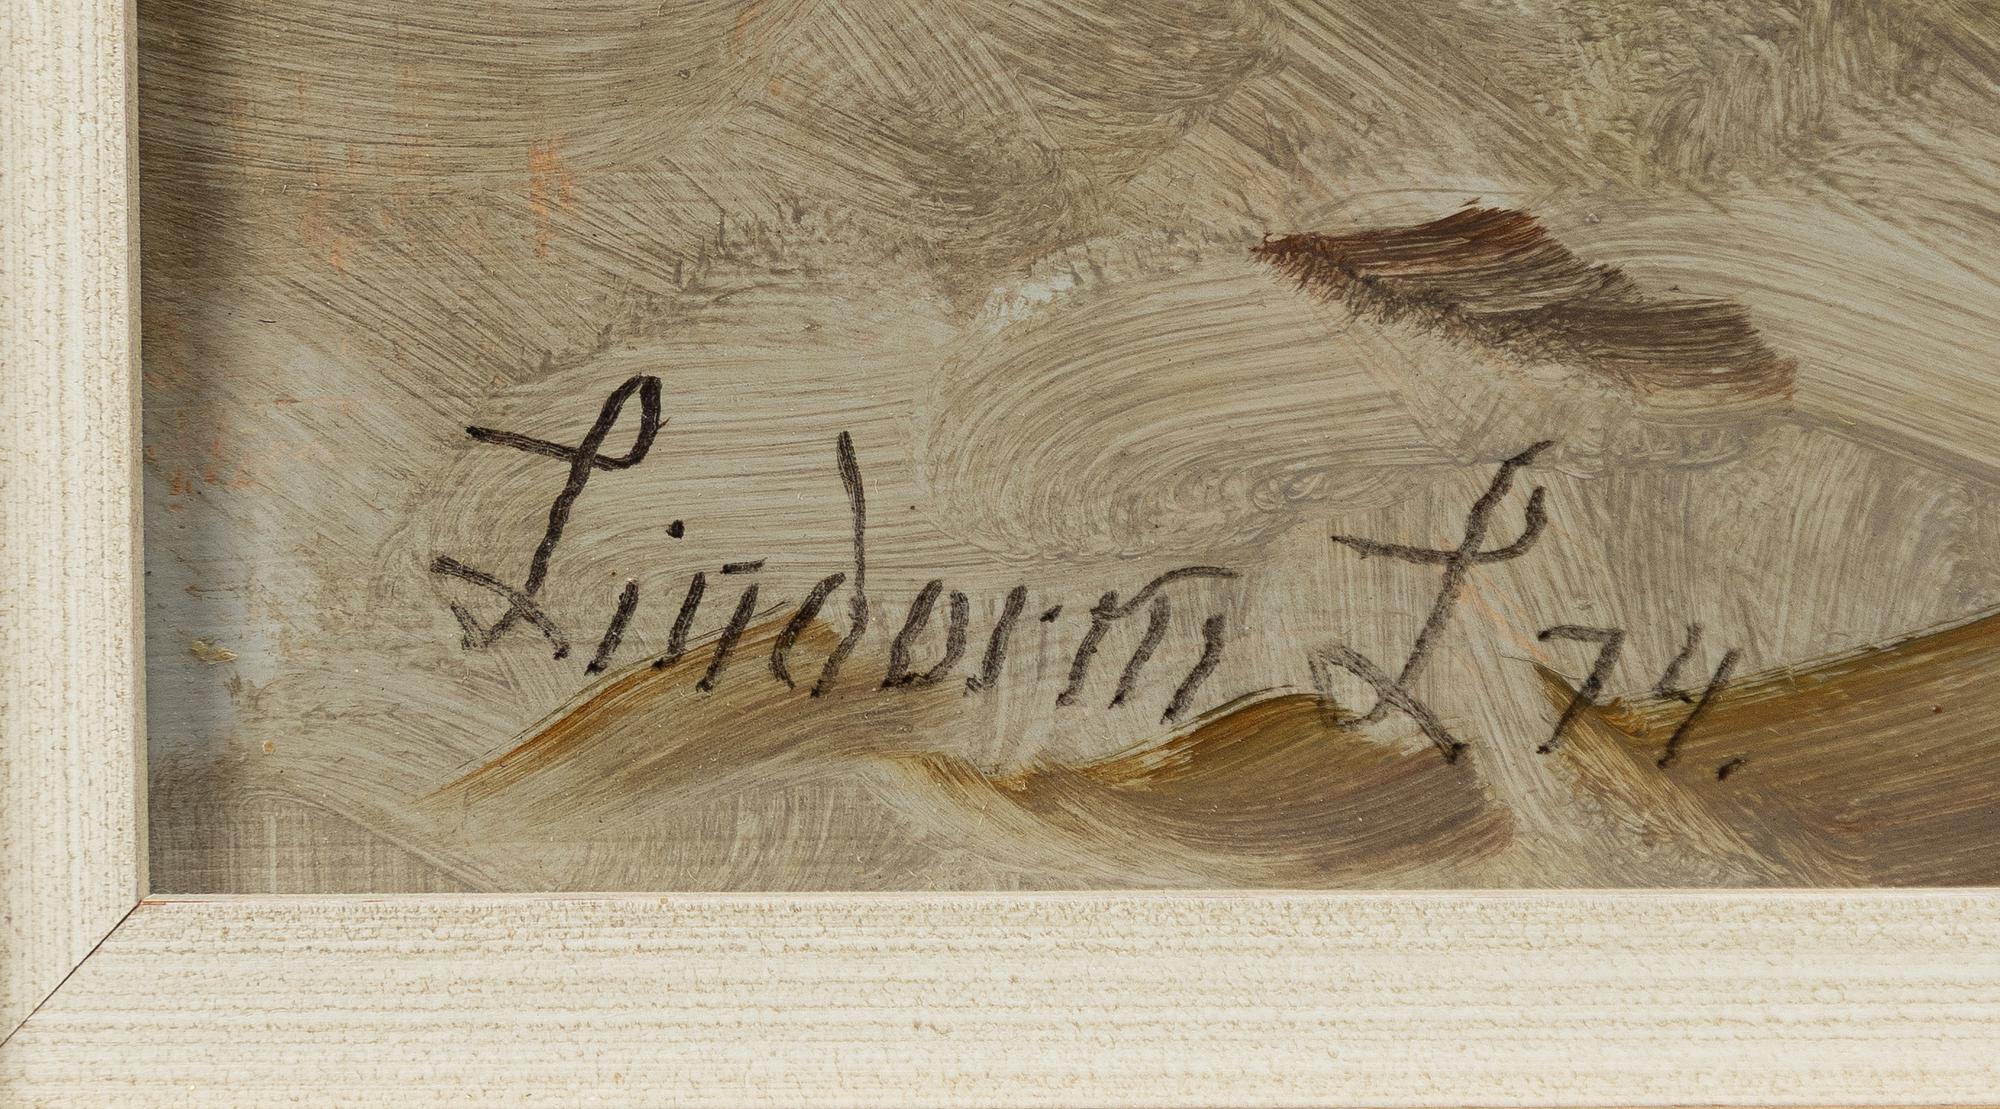 Lindorm L 74.